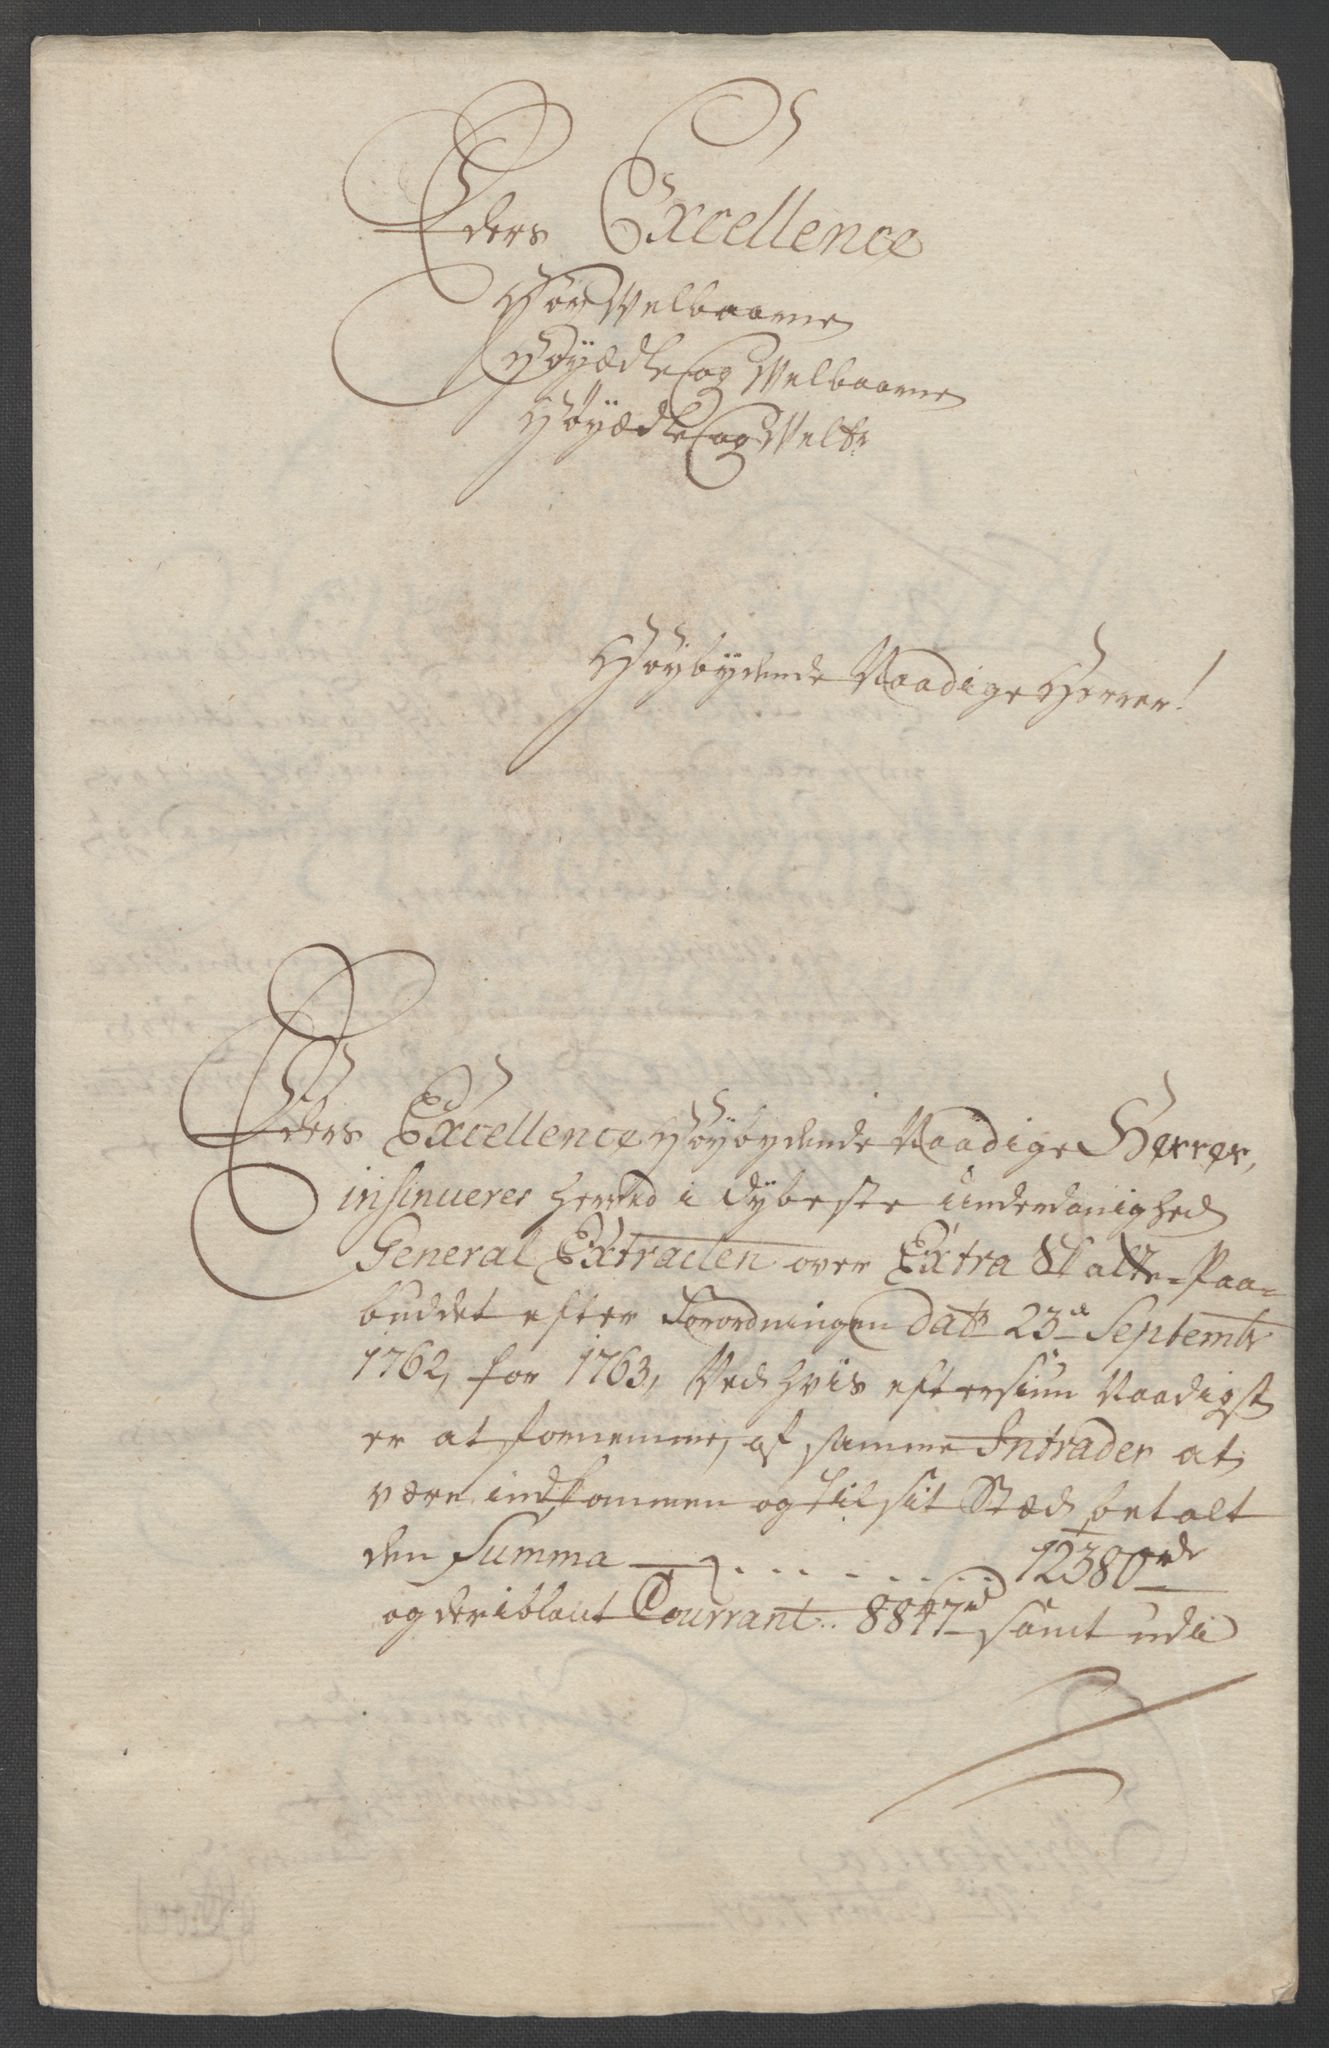 Eders Excellence
HøyVelbaarne
Høyædle og Velbaarne
Høyædle og Velb:
Høybydende Naadige Herrer!
Eders Excellence Høybydende Naadige Herrer,
insinueres herved i dybeste underdanighed
General Extracten over Extra Skatte-Paa=
buddet efter Forordningen dat: 23de Septembr
1762, for 1763, Ved hviis eftersiun Naadigst
er at fornemme, af samme Intrader at
være indkommen og til sit Stæd betalt
den Summa — . . . . . . . . 12380 rdr
og deriblant Courrant .. 8847 rd samt udi